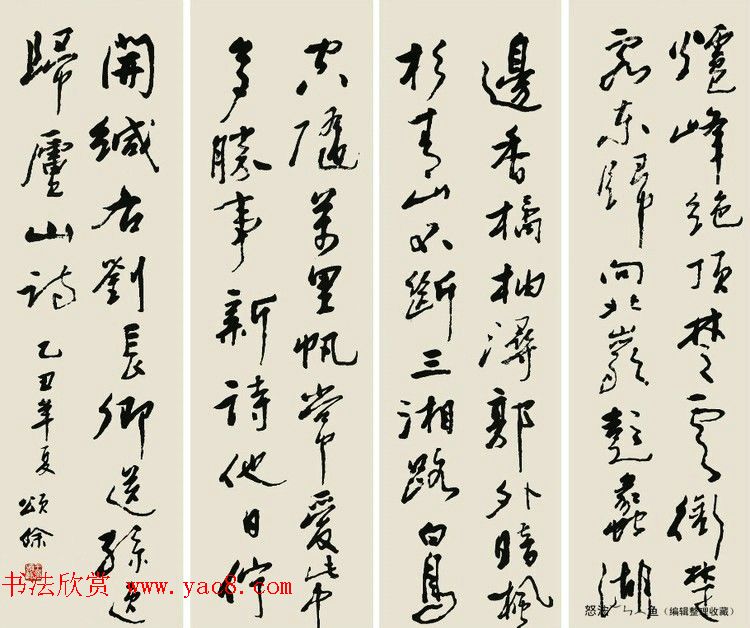 爐峰絶頂楚雲銜楚
客東歸向北巖彭蠡湖
邊香橘柚潯郭外暗楓
杉青山不斷三湘路白鳥
空隨萬里帆常愛此中
多勝事新詩他日佇
開緘右劉長卿送孫逸
歸廬山詩 乙丑年夏 頌餘
书法欣赏 www.yac8.com
鱼（编辑整理收藏）